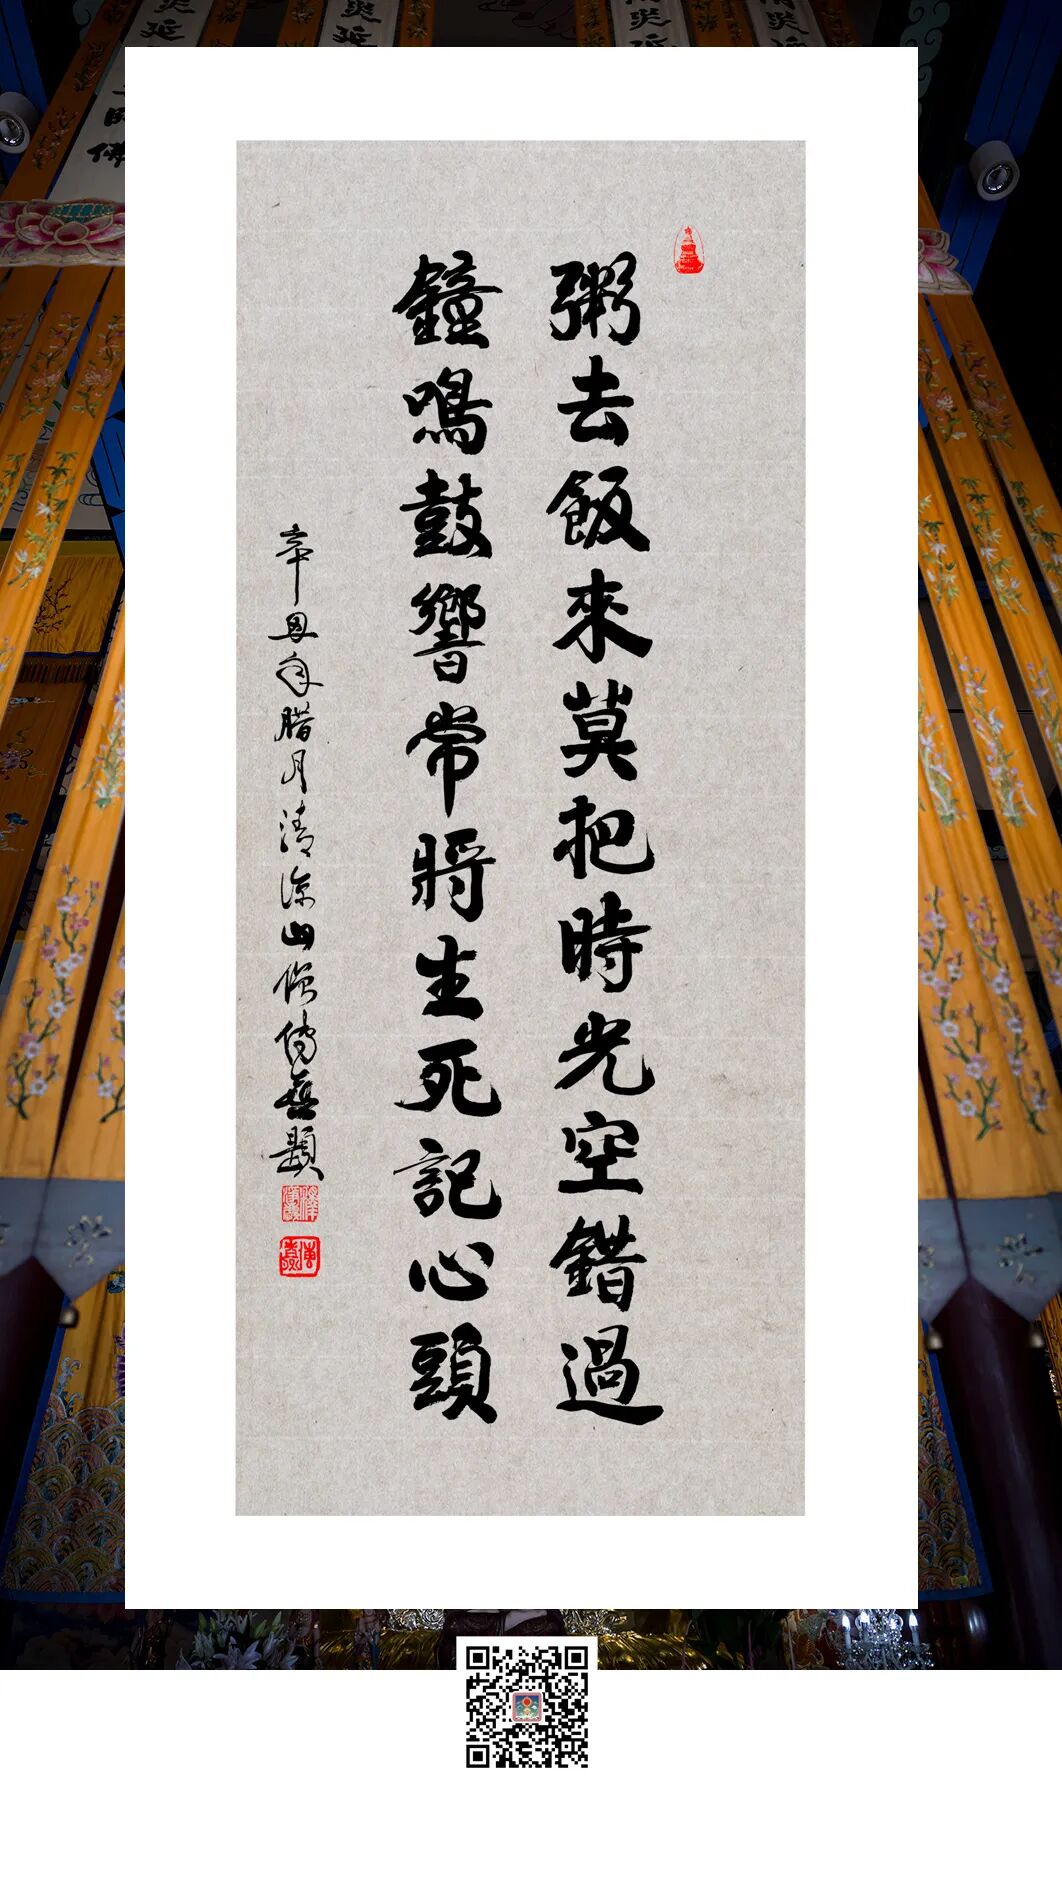 粥去飯來莫把時光空錯過
鐘鳴鼓響常將生死記心頭
辛丑年腊月清涼山僧傳喜題